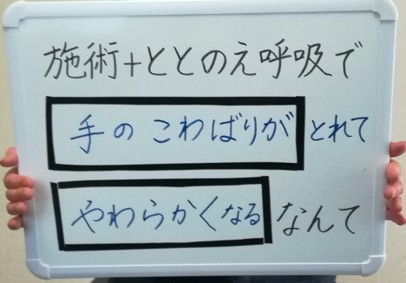 施術+ととのえ呼吸で
手のこわばりがとれて
やわらかくなるなんて